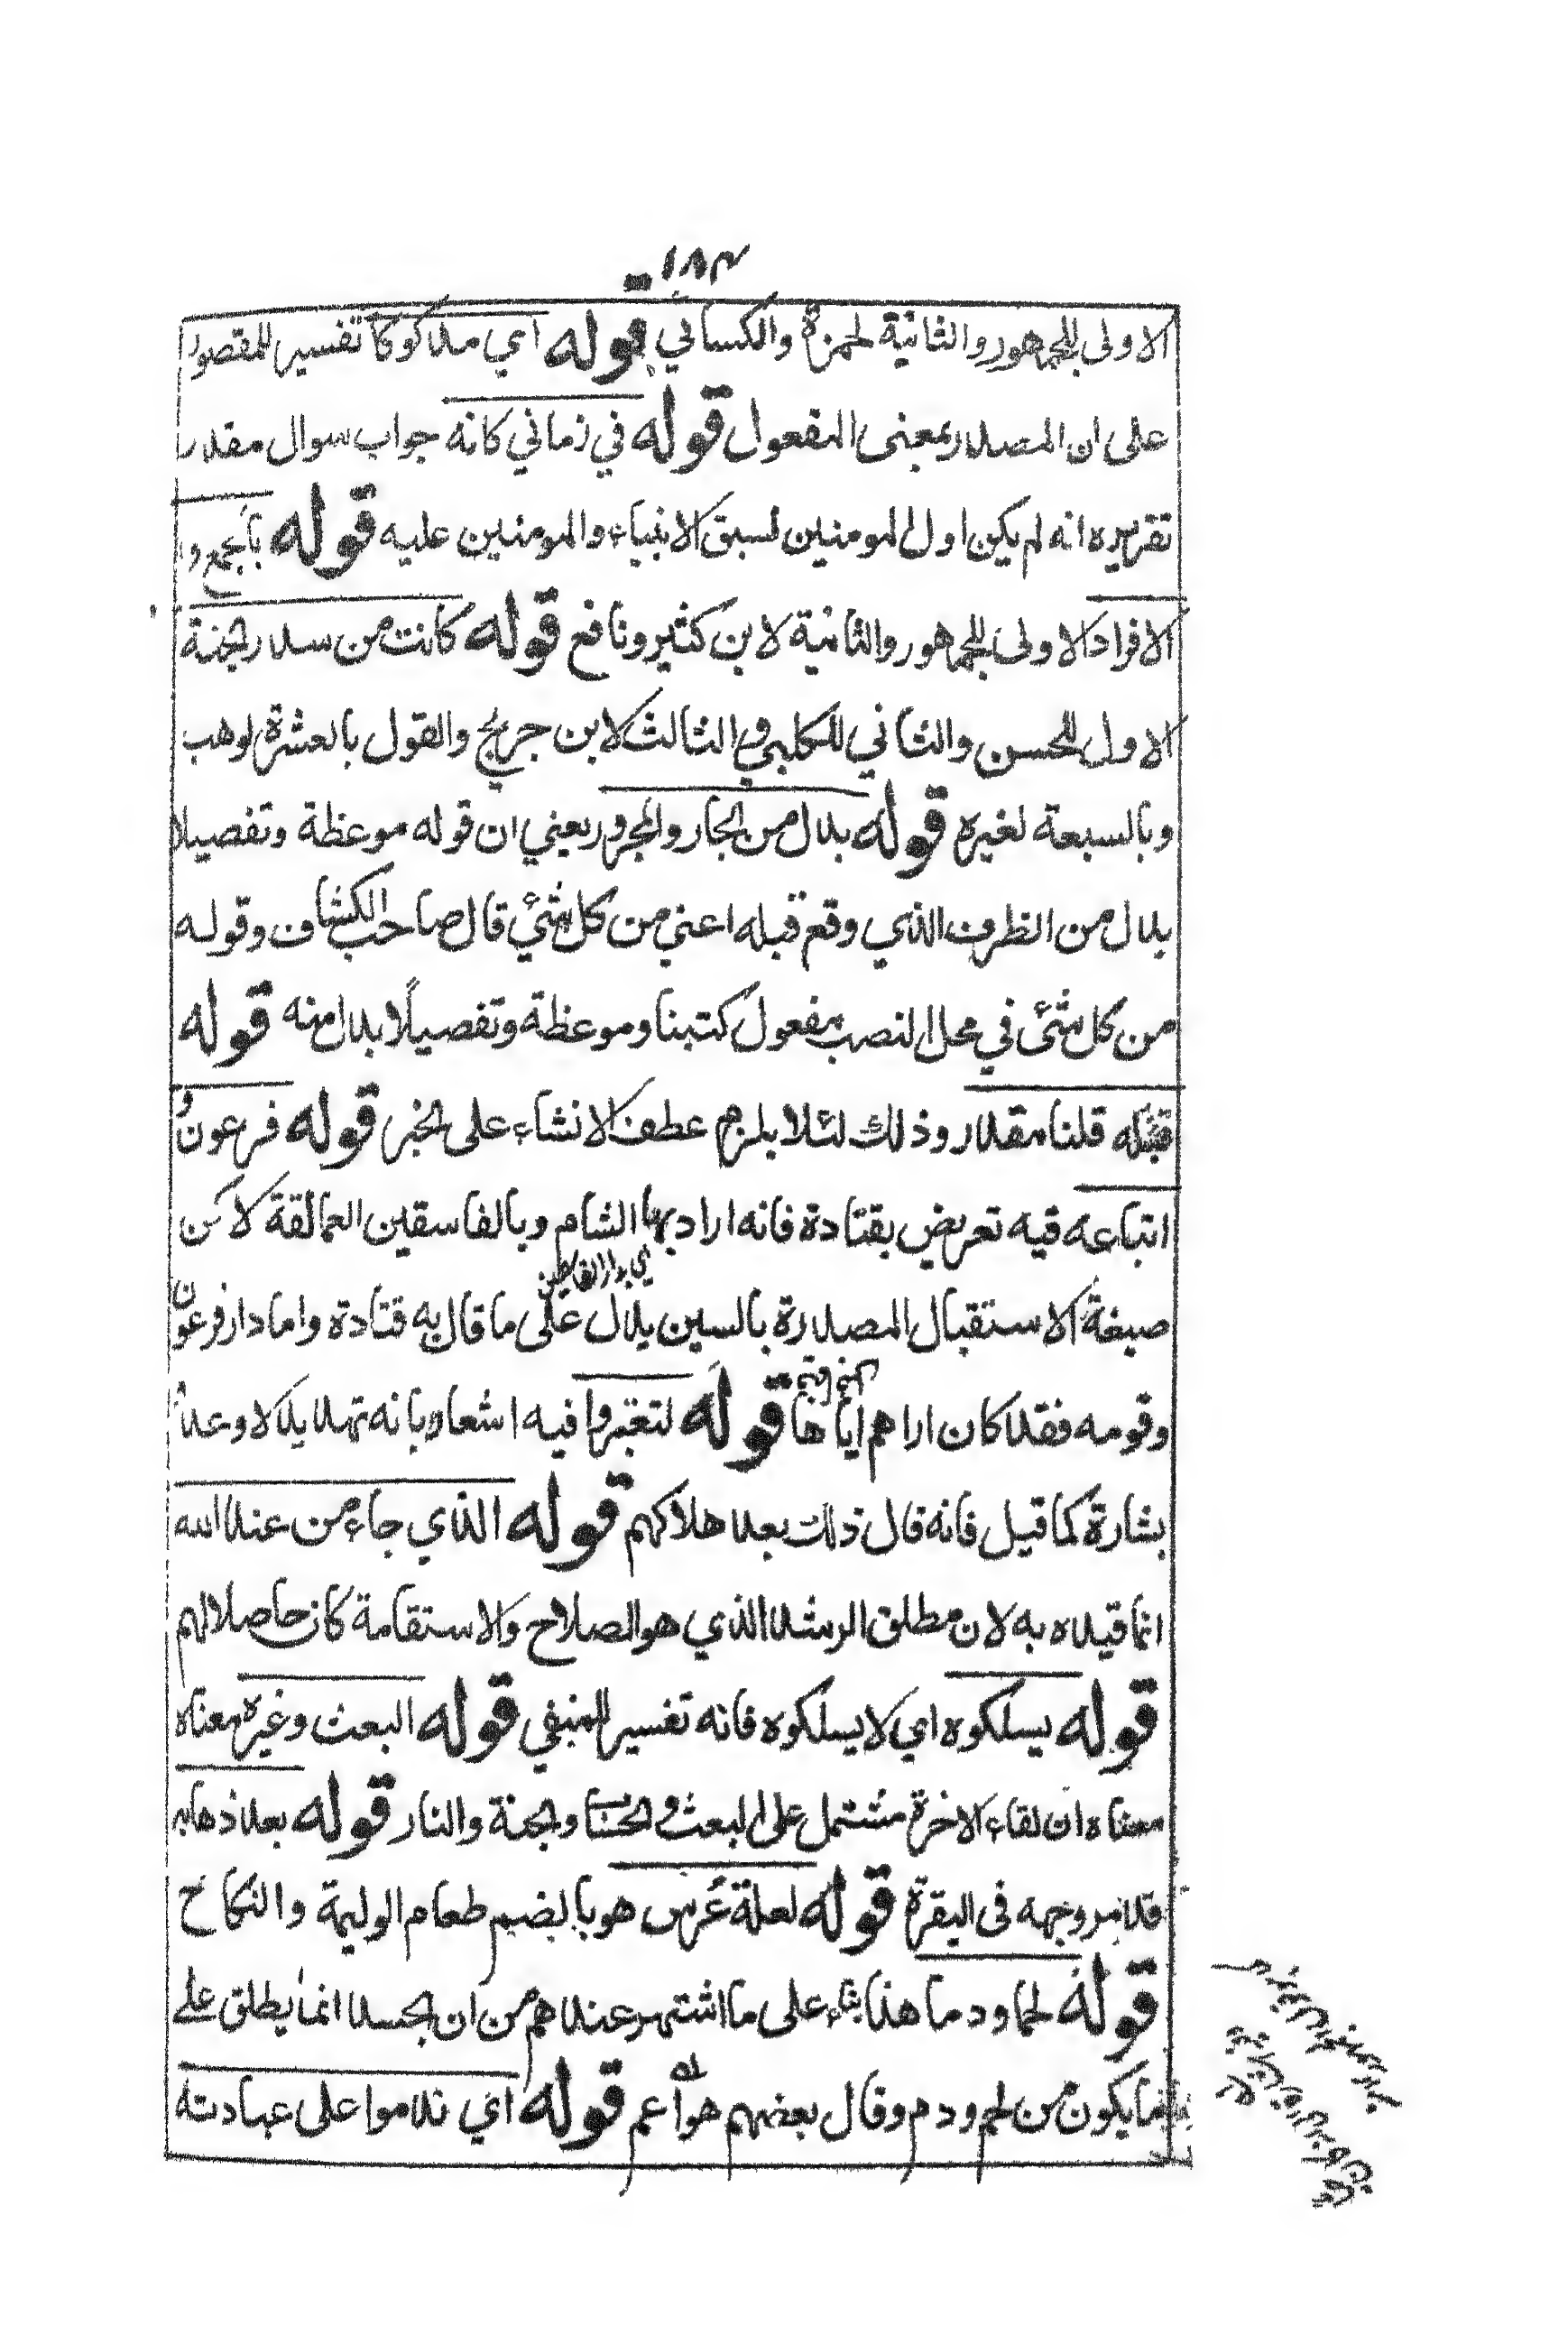 ١٨٣
الاولى للجمهور والثانية لحمزة والكسائي قوله اي مدكوكا تفسير للمقصود
على ان المصدر بمعنى المفعول قوله في زماني كانه جواب سوال مقدر
تقريره انه لم يكن اول المومنين لسبق الانبياء والمومنين عليه قوله بالجمع و
الافراد الاولى للجمهور والثانية لابن كثير ونافع قوله كانت من سدر الجنة
الاول للحسن والثاني للكلبي والثالث لابن جريج والقول بالعشرة لوهب
وبالسبعة لغيره قوله بدل من الجار والمجرور يعني ان قوله موعظة وتفصيلا
بدل من الظرف الذي وقع قبله اعني من كل شئي قال صاحب الكشاف وقوله
من كل شئى في محل النصب مفعول كتبنا وموعظة وتفصيلًا بدل منه قوله
قبله قلنا مقدر وذلك لئلا يلزم عطف الانشاء على الخبر قوله فرعون و
اتباعه فيه تعريض بقتادة فانه اراد بها الشام وبالفاسقين العمالقة لاكن
اي بدار الفاسقين
صيغة الاستقبال المصدرة بالسين يدل على ما قال به قتادة واما دار فرعون
وقومه فقد كان اراهم اياها قوله لتعتبروا فيه اشعار بانه تهديد لا وعد و
بشارة كما قيل فانه قال ذلك بعد هلاكهم قوله الذي جاء من عند الله
انما قيده به لان مطلق الرشد الذي هو الصلاح والاستقامة كان حاصلا لهم
قوله يسلكوه اي لا يسلكوه فانه تفسير للمنفي قوله البعث وغيره معناه
معناه ان لقاء الاخرة مشتمل على البعث والحساب والجنة والنار قوله بعد ذهابه
قد مر وجهه فى البقرة قوله لعلة عُرس هو بالضم طعام الوليمة والنكاح
قوله لحما ودما هذا بناء على ما اشتهر عندهم من ان الجسد انما يطلق على
ما يكون من لحم ودم وقال بعضهم هو اعم قوله اي ندموا على عبادته